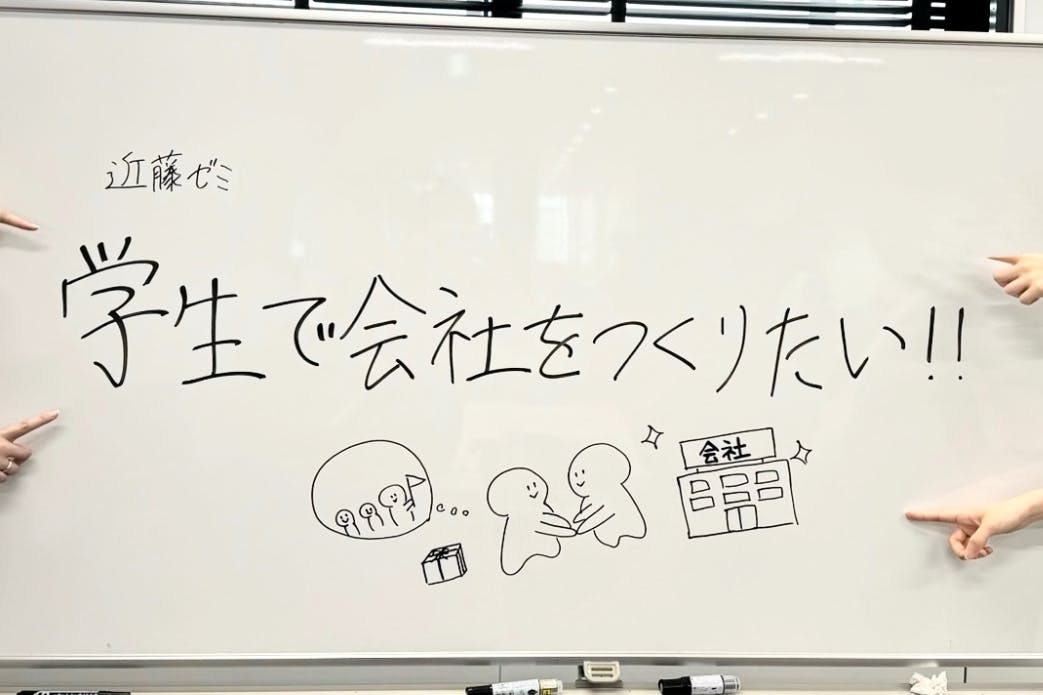 近藤ゼミ
学生で会社をつくりたい!!
会社